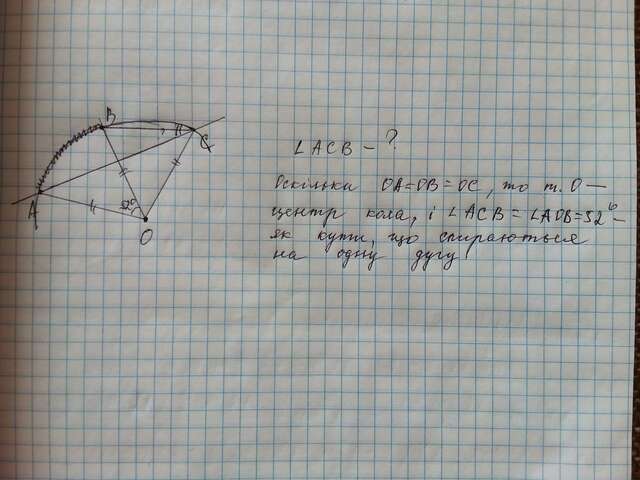 B
C
A
52°
O
∠ACB - ?
Оскільки OA=OB=OC, то т. O —
центр кола, і ∠ACB = ∠AOB=52° -
як кути, що спираються
на одну дугу